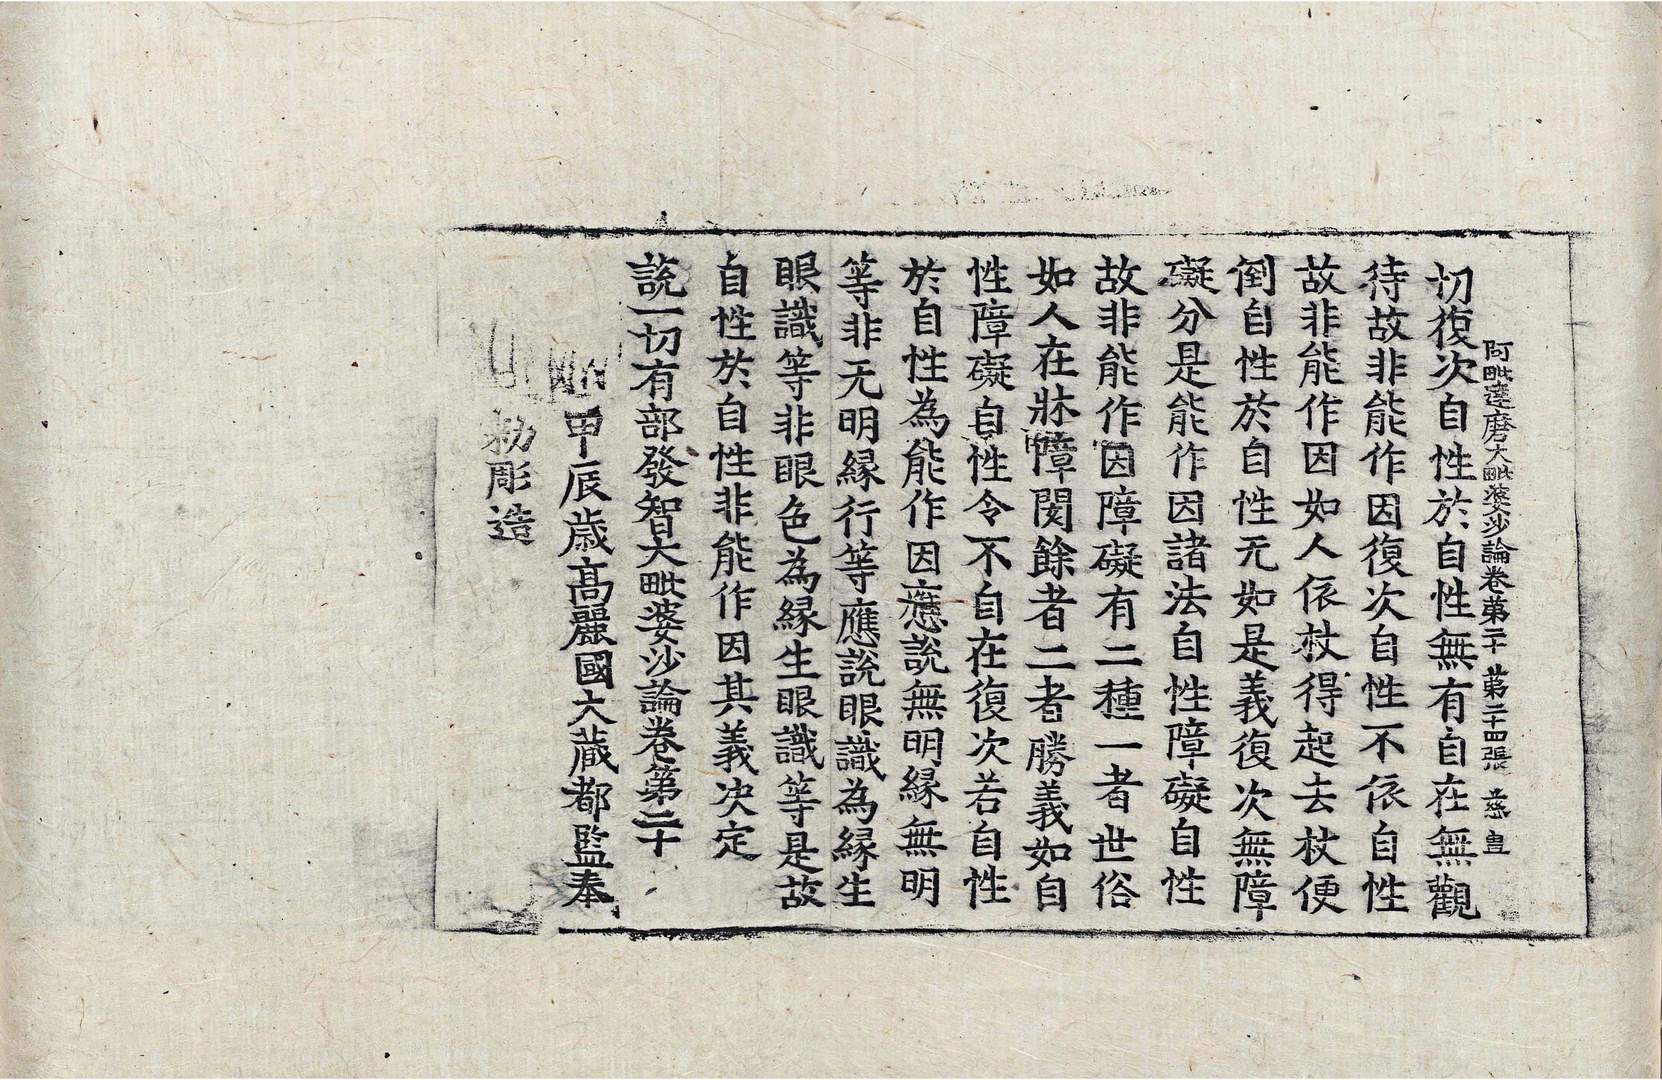 阿毗達磨大毗婆沙論卷第二十 第二十四張 慈
切復次自性於自性無有自在無觀
待故非能作因復次自性不依自性
故非能作因如人依杖得起去杖便
倒自性於自性无如是義復次無障
礙分是能作因諸法自性障礙自性
故非能作因障礙有二種一者世俗
如人在牀障閡餘者二者勝義如自
性障礙自性令不自在復次若自性
於自性為能作因應說無明緣無明
等非无明緣行等應說眼識為緣生
眼識等非眼色為緣生眼識等是故
自性於自性非能作因其義決定
說一切有部發智大毗婆沙論卷第二十
甲辰歲高麗國大藏都監奉
勑彫造